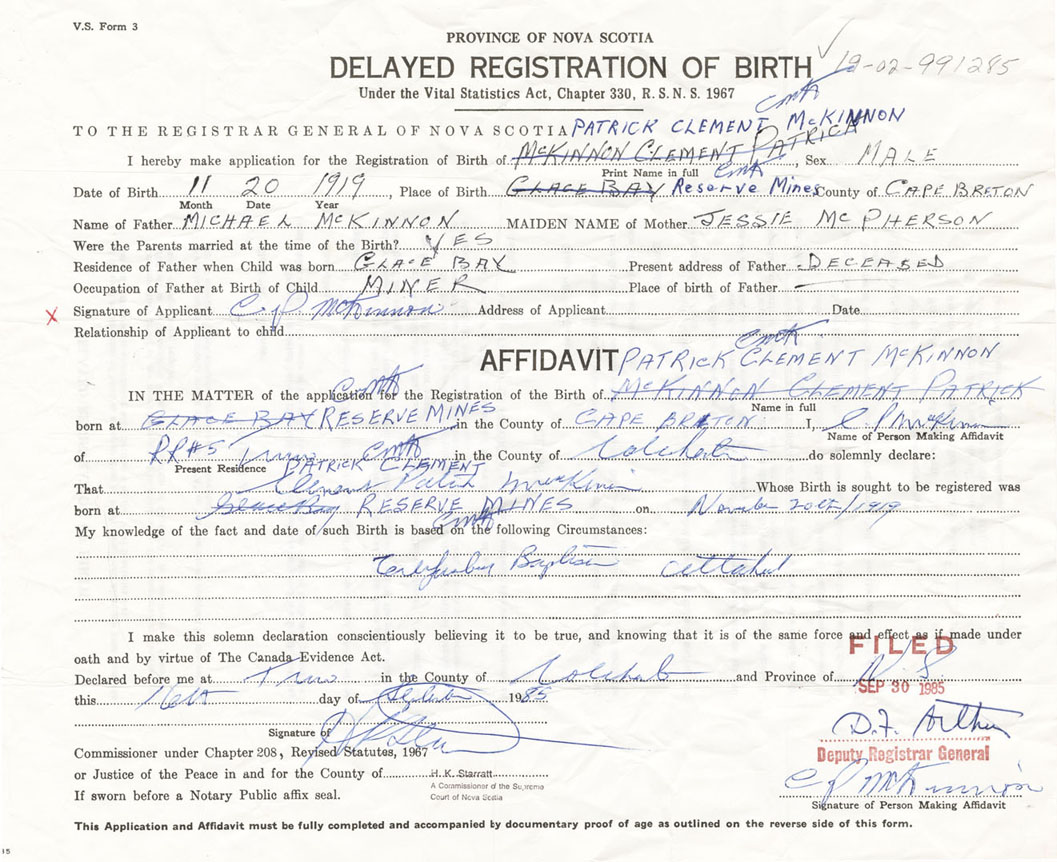 V.S. Form 3
PROVINCE OF NOVA SCOTIA
DELAYED REGISTRATION OF BIRTH 19-02-991285
Under the Vital Statistics Act, Chapter 330, R.S.N.S. 1967
TO THE REGISTRAR GENERAL OF NOVA SCOTIA PATRICK CLEMENT McKINNON
I hereby make application for the Registration of Birth of McKINNON CLEMENT PATRICK, Sex MALE
Print Name in full
Date of Birth 11 20 1919, Place of Birth GLACE BAY Reserve Mines County of CAPE BRETON
Month Date Year
Name of Father MICHAEL McKINNON MAIDEN NAME of Mother JESSIE McPHERSON
Were the Parents married at the time of the Birth? YES
Residence of Father when Child was born GLACE BAY Present address of Father DECEASED
Occupation of Father at Birth of Child MINER Place of birth of Father —
x Signature of Applicant C. P. McKinnon Address of Applicant Date
Relationship of Applicant to child
AFFIDAVIT PATRICK CLEMENT McKINNON
IN THE MATTER of the application for the Registration of the Birth of McKINNON CLEMENT PATRICK
Name in full
born at GLACE BAY RESERVE MINES in the County of CAPE BRETON I, C P McKinnon
Name of Person Making Affidavit
of RR#5 Truro in the County of Colchester do solemnly declare:
Present Residence PATRICK CLEMENT
That Clement Patrick McKinnon Whose Birth is sought to be registered was
born at Glace Bay RESERVE MINES on November 20th/1919
My knowledge of the fact and date of such Birth is based on the following Circumstances:
Baptism attached
I make this solemn declaration conscientiously believing it to be true, and knowing that it is of the same force and effect as if made under
oath and by virtue of The Canada Evidence Act.
FILED
Declared before me at Truro in the County of Colchester and Province of N.S.
this day of 1985
SEP 30 1985
Signature of
D.F. Arthur
Commissioner under Chapter 208, Revised Statutes, 1967
Deputy Registrar General
or Justice of the Peace in and for the County of H. K. Starratt
A Commissioner of the Supreme
Court of Nova Scotia
C P McKinnon
If sworn before a Notary Public affix seal.
Signature of Person Making Affidavit
This Application and Affidavit must be fully completed and accompanied by documentary proof of age as outlined on the reverse side of this form.
15